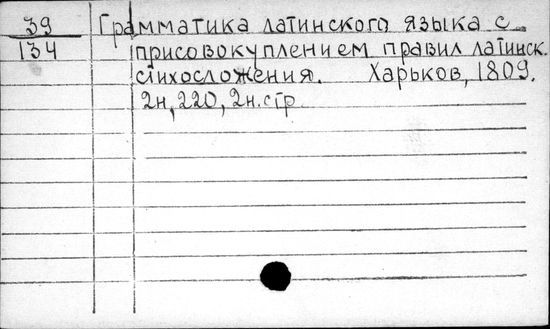 39 Грамматика латинского языка с
134 присовокуплением правил латинск.
стихосложения. Харьков, 1809.
2н, 220, 2н. стр